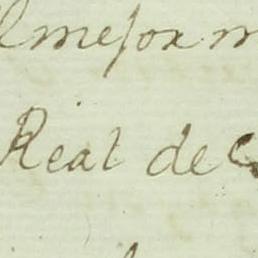 mejor
Real de